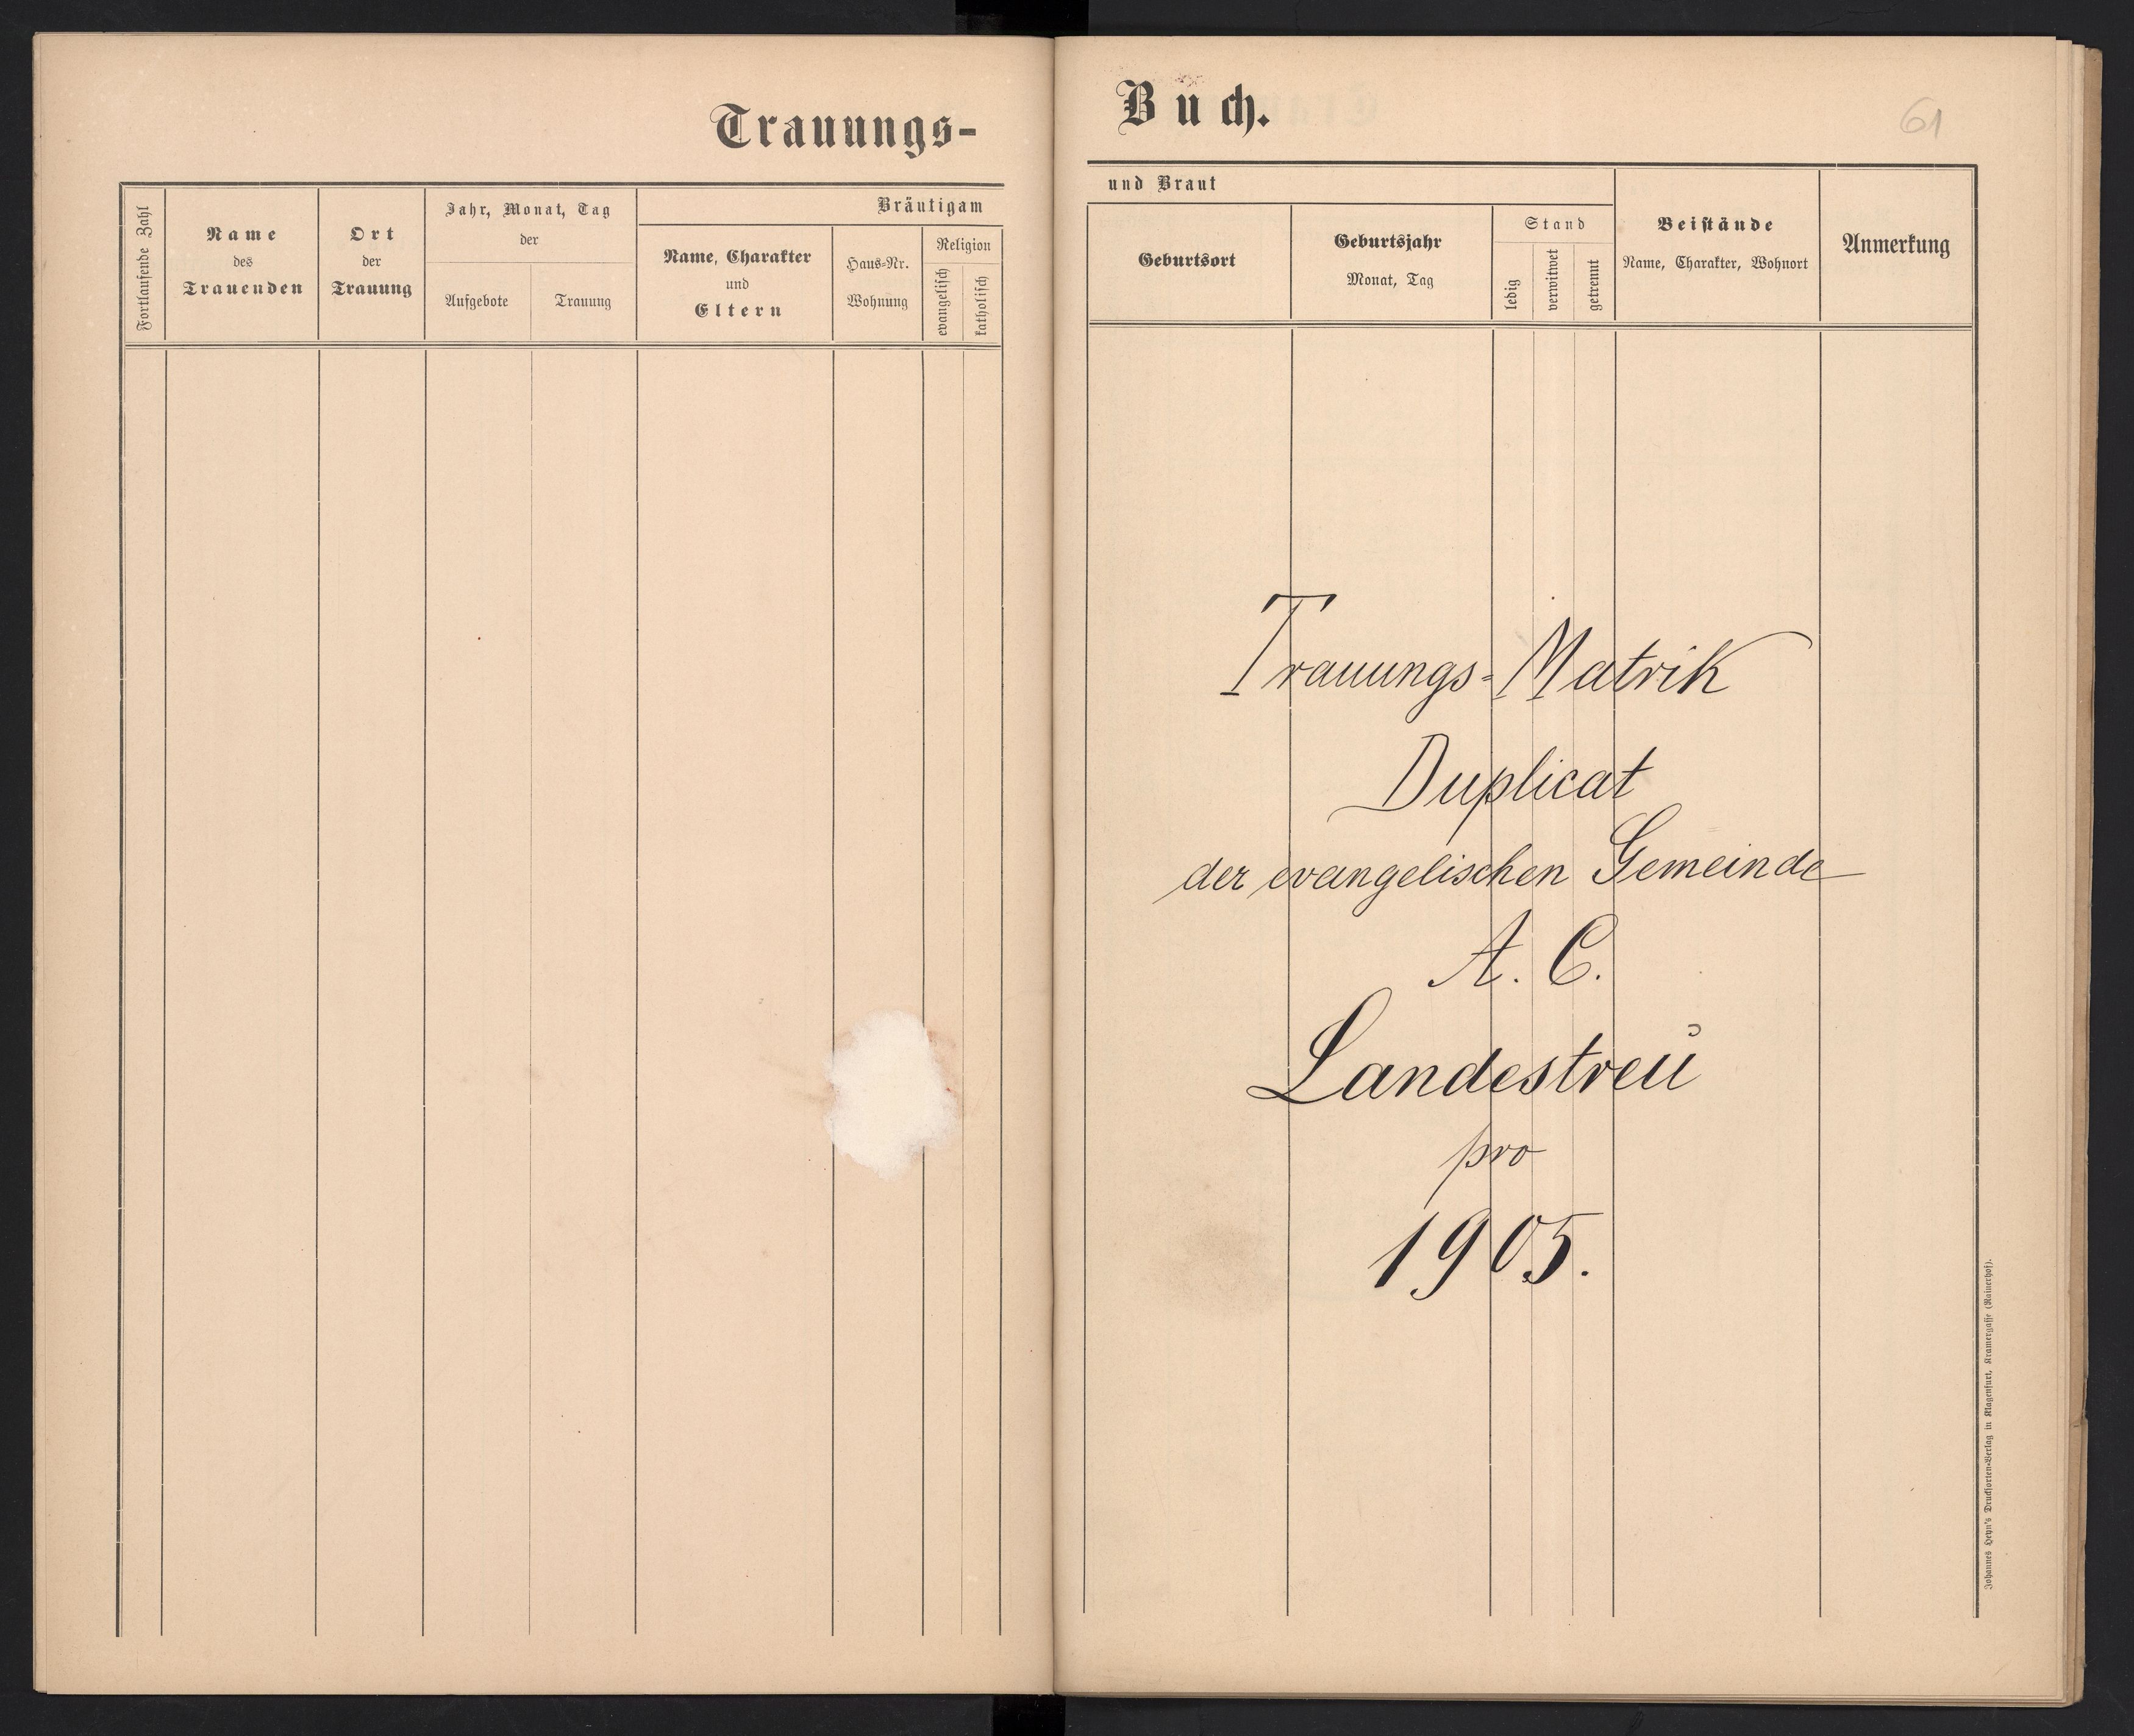 Trauungs-
Buch.
61
Fortlaufende Zahl
Name
des
Trauenden
Ort
der
Trauung
Jahr, Monat, Tag
der
Aufgebote
Trauung
Bräutigam
Name, Charakter
und
Eltern
Haus-Nr.
Wohnung
Religion
evangelisch
katholisch
und Braut
Geburtsort
Geburtsjahr
Monat, Tag
Stand
ledig
verwitwet
getrennt
Beistände
Name, Charakter, Wohnort
Anmerkung
Trauungs-Matrik
Duplicat
der evangelischen Gemeinde
A. C.
Landestreu
pro
1905.
Johannes Heyn's Drucksorten-Verlag in Klagenfurt, Kramergasse (Rainerhof).